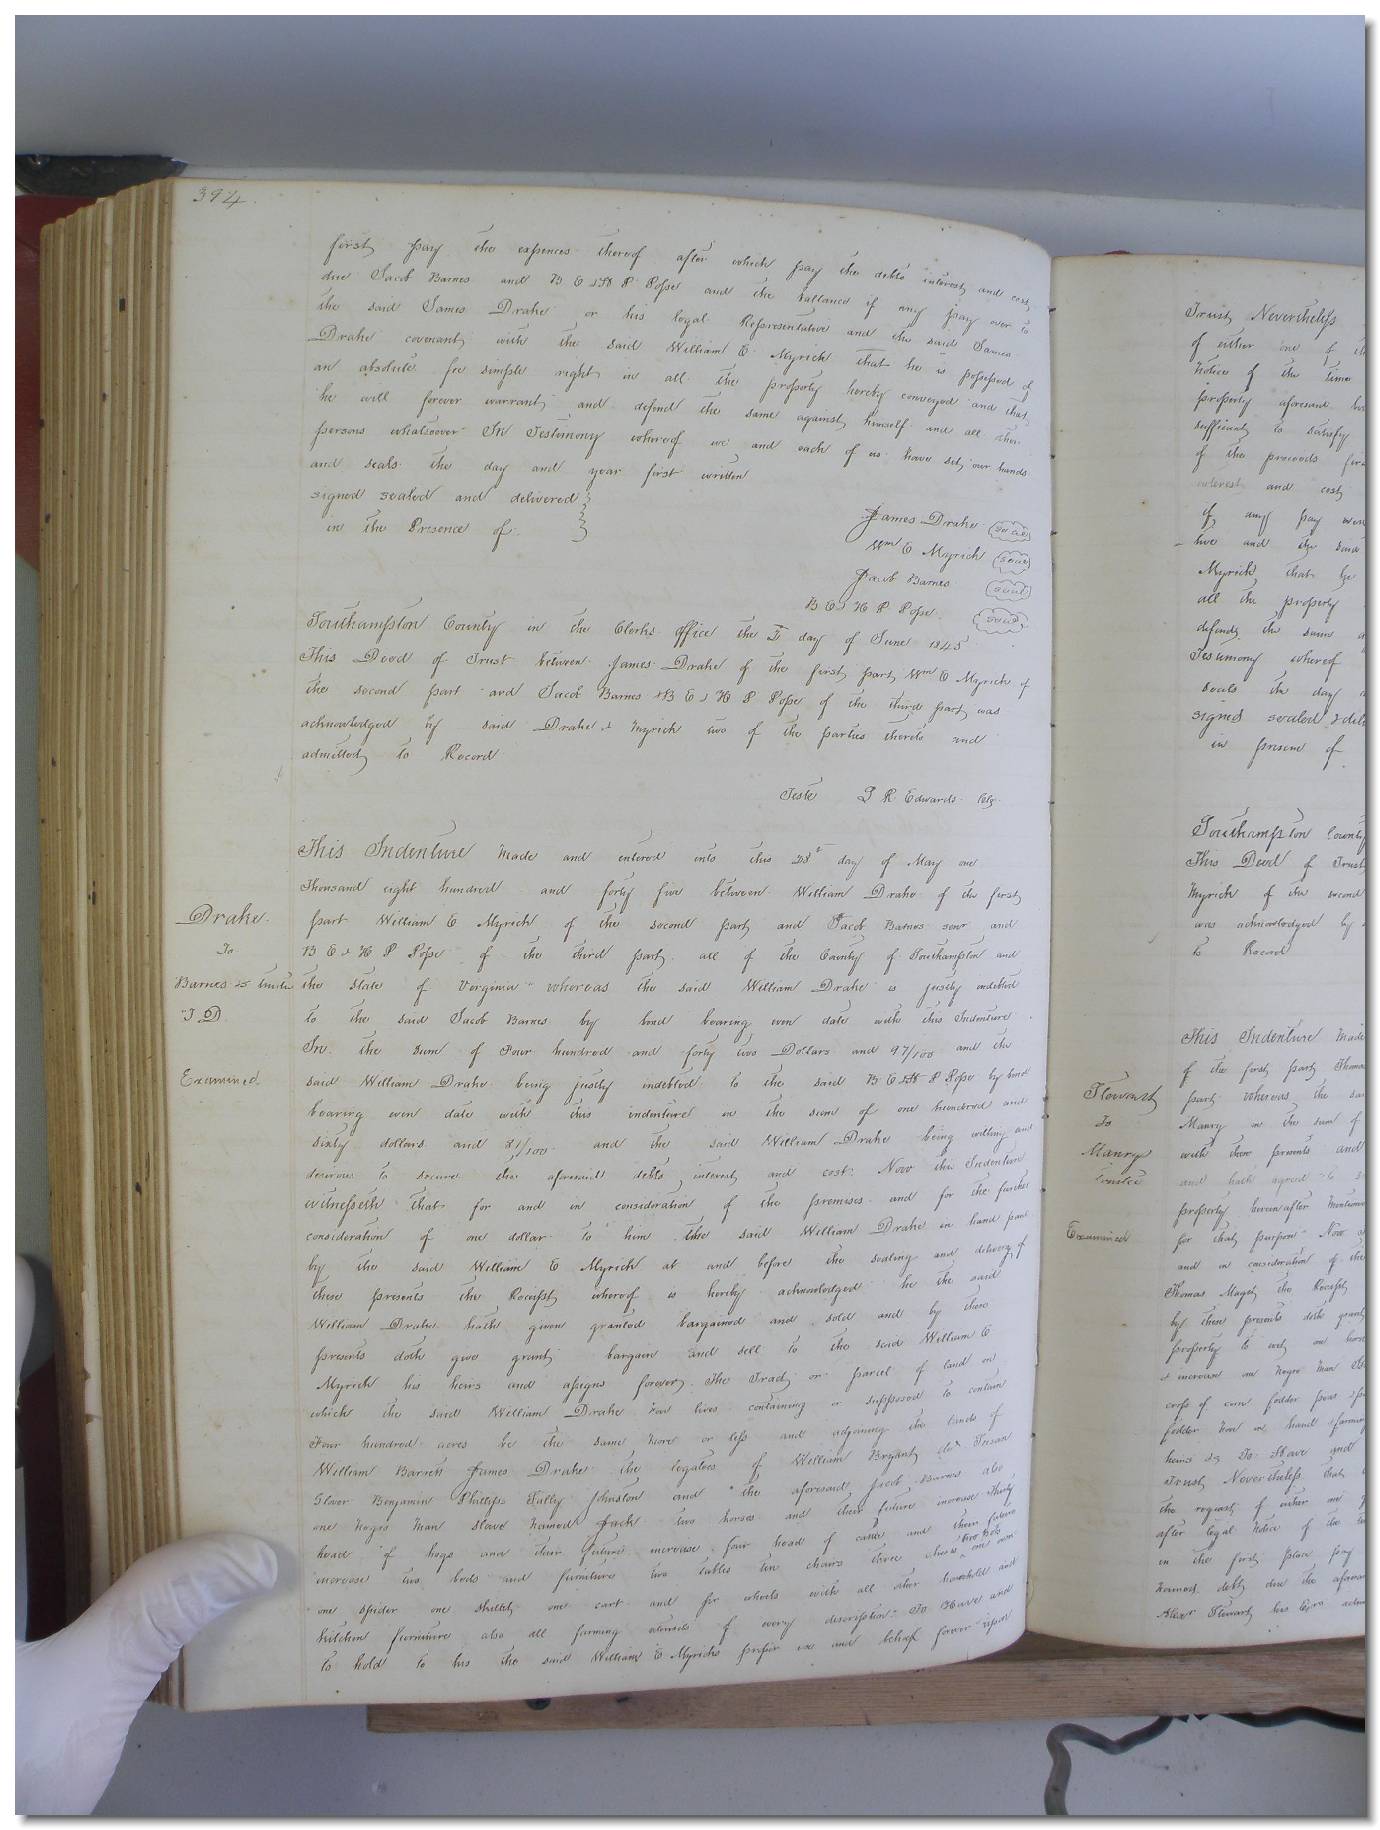 394.
first pay the expences thereof after which pay the debts interest and cost,
due Jacob Barnes and B E & H P Pope and the ballance if any pay over to
the said James Drake or his legal Representative and the said James
Drake covenant with the said William E. Myrick that he is possessed of
an absolute fee simple right in all the property hereby conveyed and that
he will forever warrant and defend the same against himself and all other
persons whatsoever In Testimony whereof we and each of us have set our hands
and seals the day and year first written
signed sealed and delivered
in the Presence of
James Drake seal
Wm E Myrick seal
Jacob Barnes seal
B E & H P Pope seal
Southampton County in the Clerks Office the day of June 1845
This Deed of Trust between James Drake of the first part Wm E Myrick of
the second part and Jacob Barnes & B E & H P Pope of the third part was
acknowledged by said Drake & Myrick two of the parties thereto and
admitted to Record
Teste L R Edwards Clk.
This Indenture made and entered into this 28th day of May one
Thousand eight hundred and forty five between William Drake of the first
Drake.
part William E Myrick of the second part and Jacob Barnes senr and
To
B E & H P Pope of the third part all of the County of Southampton and
Barnes &c trustee
the State of Verginia whereas the said William Drake is justly indebted
T D
to the said Jacob Barnes by bond bearing even date with this Indenture
In the sum of Four hundred and forty two Dollars and 97/100 and the
Examined
said William Drake being justly indebted to the said B E & H P Pope by bond
bearing even date with this indenture in the sum of one hundred and
sixty dollars and 21/100 and the said William Drake being willing and
desirous to secure the aforesaid debts interest and cost. Now this Indenture
witnesseth that for and in consideration of the premises and for the further
consideration of one dollar to him the said William Drake in hand paid
by the said William E Myrick at and before the sealing and delivery of
these presents the Receipt whereof is hereby acknowledged he the said
William Drake hath given granted bargained and sold and by these
presents doth give grant bargain and sell to the said William E
Myrick his heirs and assigns forever. The Tract or parcel of land on
which the said William Drake now lives containing or supposed to contain
Four hundred acres be the same more or less and adjoining the lands of
William Barrett James Drake the legatees of William Bryant decd Susan
Glover Benjamin Phillips Sally Johnston and the aforesaid Jacob Barnes also
one negro man slave named Jack two horses and their future increase Thirty
head of hogs and their future increase four head of cattle and their future
increase two beds and furniture two tables ten chairs three chests two pots one oven
one spider one skillet one cart and pr wheels with all other household and
kitchen furniture also all farming utensils of every description. To Have and
to hold to his the said William E Myricks proper use and behoof forever upon
Trust Nevertheless
of either one of the
notice of the time
property aforesaid
sufficient to satisfy
of the proceeds
interest and cost
if any pay over
tive and the said
Myrick that he
all the property
defend the same
Testimony whereof
seals the day
signed sealed & deli
in presence of
Southampton County
This Deed of Trust
Myrick of the second
was acknowledged by
to Record
This Indenture Made
of the first part Thomas
Stewart
part whereas the said
To
Manry in the sum of
Manry
with these presents and
trustee
and hath agreed to
property herein after mentioned
Examined
for that purpose Now
and in consideration of the
Thomas Magett the Receipt
by these presents doth grant
property to wit one horse
& increase one negro man
crops of corn fodder peas
fodder now on hand farming
To Have and
Trust Nevertheless that
the request of either
after legal notice of the
in the first place pay
named debt due the aforesaid
Alexr Stewart his Exrs